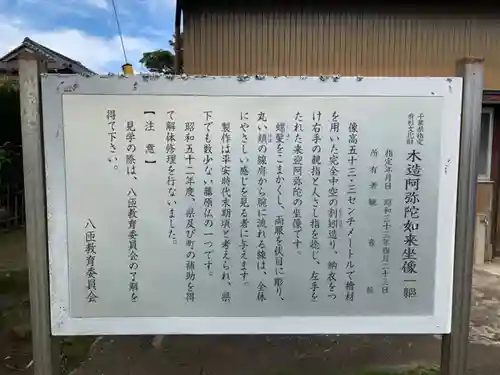 千葉県指定
有形文化財
木造阿弥陀如来坐像 一躯
指定年月日 昭和三十三年四月二十三日
所有者 観音院
像高五十三・三センチメートルで檜材
を用いた完全中空の割矧造り、納衣をつ
け右手の親指と人さし指を捻じ、左手を
たれた来迎阿弥陀の坐像です。
螺髪をこまかくし、両眼を伏目に彫り、
丸い頬の線肩から腕に流れる線は、全体
にやさしい感じを見る者に与えます。
製作は平安時代末期頃と考えられ、県
下でも数少ない藤原仏の一つです。
昭和五十二年度、県及び町の補助を得
て解体修理を行ないました。
【注意】
見学の際は、八匝教育委員会の了解を
得て下さい。
八匝教育委員会